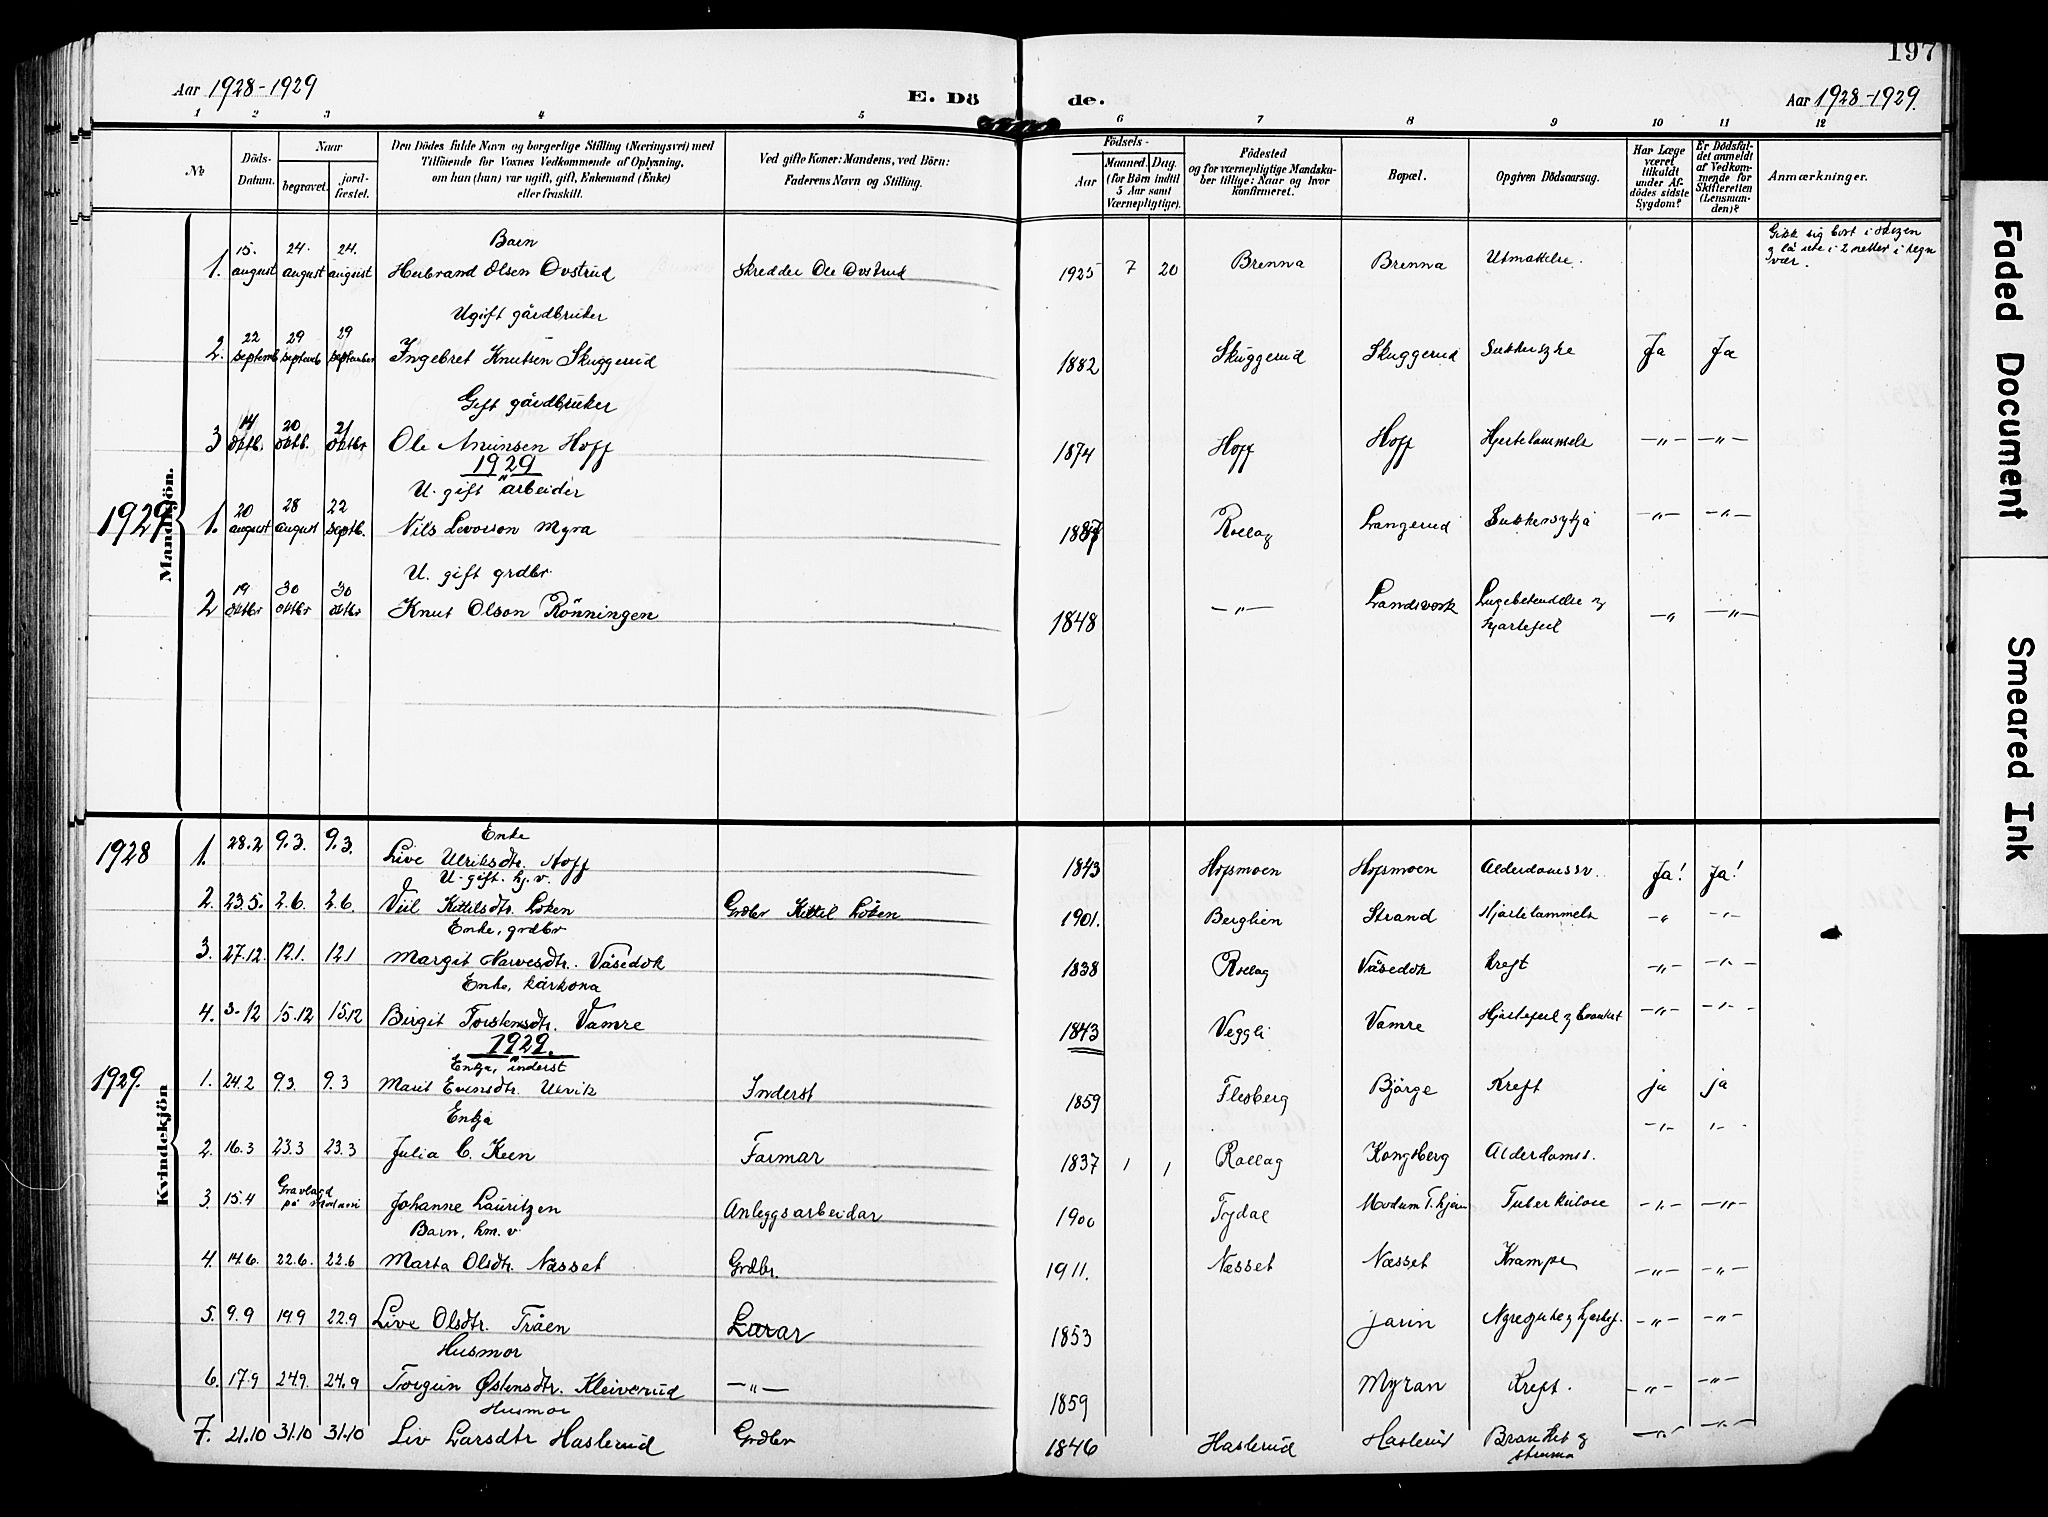 197
Aar 1928-1929 E. Dö de. Aar 1928-1929.
1 2 3 4 5 6 7 8 9 10 11 12
No
Döds-Datum.
Naar
begravet. jordfæstet.
Den Dödes fulde Navn og borgerlige Stilling (Næringsvei) med
Tilföiende for Voxnes Vedkommende af Oplysning,
om hun (han) var ugift, gift, Enkemand (Enke)
eller fraskilt.
Ved gifte Koner: Mandens, ved Börn:
Faderens Navn og Stilling.
Födsels-
Aar Maaned. Dag.
(for Börn indtil
5 Aar samt
Værnepligtige).
Födested
og for værnepligtige Mandskaber tillige: Naar og hvor
konfirmeret.
Bopæl.
Opgiven Dödsaarsag.
Har Læge
været
tilkaldt
under Afdödes sidste
Sygdom?
Er Dödsfaldet anmeldt
af Vedkommende for
Skifteretten
(Lensmanden)?
Anmærkninger.
Mandkjön.
Barn
1. 15. august 24. august 24. august Herbrand Olsen Ovstrud Skredder Ole Ovstrud 1925 7 20 Brenna Brenna Utmattelse. Gikk sig bort i skogen
og lå ute i 2 netter i regn
vær.
Ugift gårdbruker
2. 22 septemb 29 septemb 29 september Ingebret Knutsen Skuggerud 1882 Skuggerud Skuggerud Sukkersyke Ja Ja
Gift gårdbruker
3 14 oktb. 20 oktb. 21 oktbr Ole Amunsen Hoff 1874 Hoff Hoff Hjertelammelse -"- -"-
1929
1929 U. gift arbeider
1. 20 august 28 august 22 septb. Nils Levorson Myra 1887 Rollag Langerud Sukkersykja -"- -"-
U. gift grdbr
2 19 oktbr 30 oktbr 30 oktbr Knut Olson Rönningen 1848 -"- Landsverk Lugebetendelse og
hjartefeil -" -"-
Kvindekjön
1928 Enke
1. 28.2 9.3. 9.3. Live Ulriksdtr. Hoff 1843 Hofsmoen Hofsmoen Alderdomssv. Ja! Ja!
U. gift. hj. v.
2. 23.5. 2.6. 2.6. Kittilsdtr. Löken Grdbr Kittil Löken 1901. Berglien Strand Hjartelammels -" -"-
Enke, grdbr
3. 27.12 12.1. 12.1 Margit Narvesdtr. Våsedok 1838 Rollag Våsedok Kreft -"- -"-
Enke, kårkona
4. 3.12 15.12 15.12 Birgit Torstensdtr. Vamre 1843 Veggli Vamre Hjartefeil og bronkit -"- -"-
1929.
1929. Enkja, inderst
1. 24.2 9.3. 9.3 Marit Evensdtr. Ulvik Inderst 1859 Flesberg Björge Kreft ja ja
Enkja
2. 16.3 23.3 23.3 Julia C. Keen Farmar 1837 1 1 Rollag Kongsberg Alderdomss. -"- -"-
3. 15.4 Gravlagd
på Modum Johanne Lauritzen Anleggsarbeidar 1900 Tydal Modum T. hjem Tuberkulose -"- -"-
Barn, hm. v
4. 14.6. 22.6. 22.6 Marta Olsdtr. Næsset Grdbr. 1911. Næsset Næsset Krampe -"- -"-
5. 9.9 19.9 22.9 Live Olsdtr. Tråen Lærar 1853 Jarin -"- -"-
Husmor
6. 17.9 24.9 24.9 Torgun Østensdtr. Kleiverud -"- 1859 Myran Kreft. -"- -"-
Husmor
7. 21.10 31.10 31.10 Liv Larsdtr Haslerud Grdbr 1846 Haslerud Haslerud Bronkit og
struma -"- -"-
Faded Document
Smeared Ink